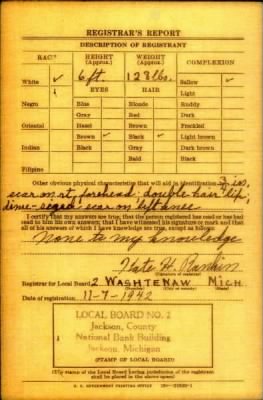 REGISTRAR'S REPORT
DESCRIPTION OF REGISTRANT
RACE HEIGHT (Approx.) WEIGHT (Approx.) COMPLEXION
White ✓ 6 ft. 128 lbs. Sallow ✓
EYES HAIR Light
Negro Blue Blonde Ruddy
Gray Red Dark
Oriental Hazel Brown Freckled
Brown ✓ Black ✓ Light brown
Indian Black Gray Dark brown
Bald Black
Filipino
Other obvious physical characteristics that will aid in identification 3/4 in.
scar on rt. forehead; double hair lip;
dime-sized scar on left knee
I certify that my answers are true; that the person registered has read or has had
read to him his own answers; that I have witnessed his signature or mark and that
all of his answers of which I have knowledge are true, except as follows:
None to my knowledge
H. Rankin
(Signature of registrar)
Registrar for Local Board 2 WASHTENAW MICH
(Number) (City or county) (State)
Date of registration 11-7-1942
LOCAL BOARD NO. 2
Jackson, County
National Bank Building
Jackson, Michigan
(STAMP OF LOCAL BOARD)
(The stamp of the Local Board having jurisdiction of the registrant
shall be placed in the above space)
U. S. GOVERNMENT PRINTING OFFICE